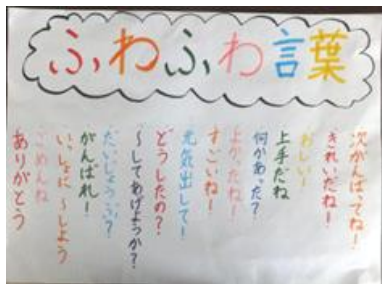 ふわふわ言葉
次がんばってね!
きれいだね!
おしい!
上手だね
何があった?
よかったね!
すごいね!
元気出して!
どうしたの?
~してあげようか?
だいじょうぶ?
がんばれ!
いっしょに~しよう
ごめんね
ありがとう